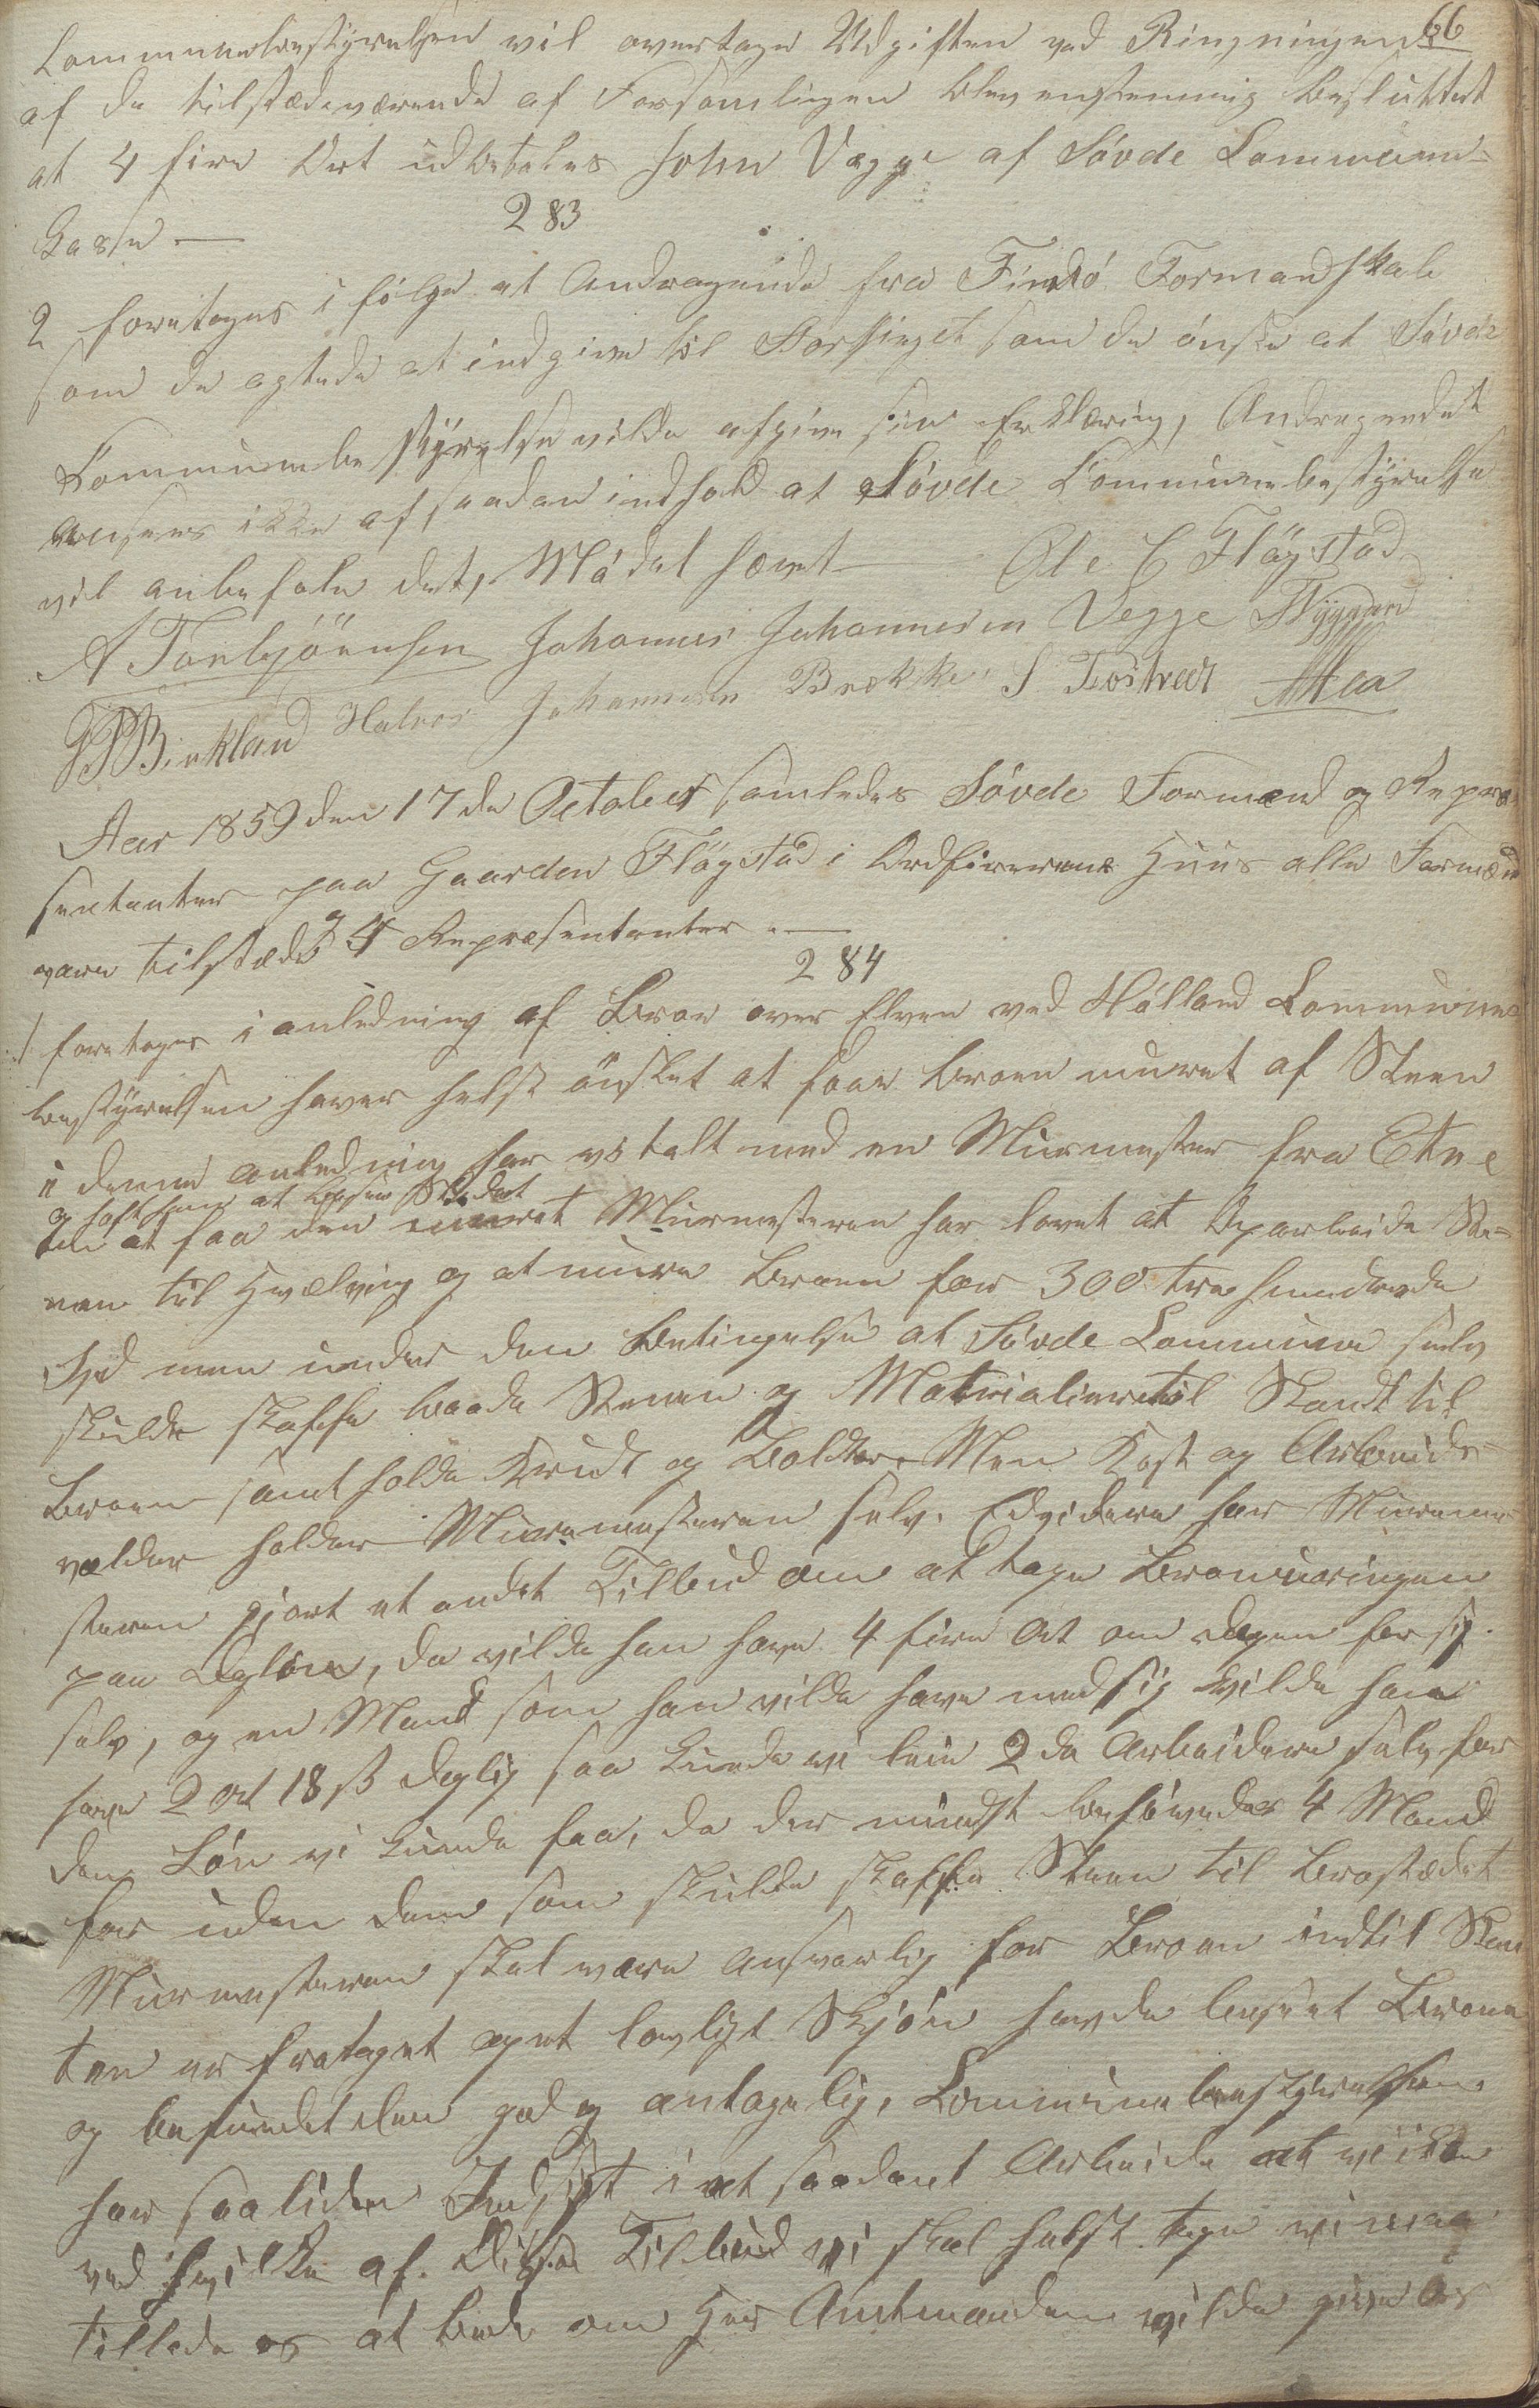 66
Communebestyrelsen vil overtage Udgiften ved Ringningen
af de tilstædeværende af Forsamlingen blev enstemmig besluttet
at 4 fire Ort udbetales John Vegge af Søvde Commune-
Casse —
283
2 foretoges i følge et Andragende fra Findø Formandskab
som de agtede at indgive til Storthinget som de ønske at Søvde
Communebestyrelse vilde afgive sin Erklæring, Andragendet
ansees ikke af saadan indhold at Søvde Communebestyrelse
vil anbefale det, Mødet hævet Ole C Fløgstad
A Torbjörnsen Johannes Johannesen Vegge
Birkland Halvor Johannesen Brekke S Tostved
Aar 1859 den 17de October samledes Søvde Formænd og Repræ-
sentanter paa Gaarden Fløgstad i Ordførerens Huus alle Formænd
vare tilstæde og 4 Repræsentanter —
284
1 foretoges i anledning af Broe over Elven ved Hålland Commune
bestyrelsen haver helst önsket at faae Broen muret af Steen
i denne anledning har vi talt med en Murmester fra Etne
og haft ham at besee Stædet
til at faa den muret Murmesteren har lovet at Oparbeide Ste-
nen til Hvælving og at mure Broen for 300 trehundrede
Spd men under den Betingelse at Søvde Commune selv
skulde skaffe baade Stenen og Materialierne til Standt til
Broen samt holde Krudt og Boldter. Men Kost og Arbeids-
holder Muremesteren selv. Edvidere har Murme-
steren gjort et andet Tilbud om at tage Bromuringen
paa Dagløn, da vilde han have 4 fire Ort om dagen for sig
selv, og en Mand som han vilde have med sig vilde han
have 2 Ort 18 ß daglig saa kunde vi leie 2de Arbeidere selv for
den Løn vi kunde faa, da der mindst behøvedes 4 Mand
for uden dem som skulde skaffe Steen til Brostædet
Murmesteren skal være Ansvarlig for Broen indtil
er fretaget og et lovligt Skjøn havde beseet Broen
og befundet den god og antagelig, Communebestyrelsen
har saa liden Indsigt i et saadant Arbeide at vi ikke
ved hvilke af disse Tilbud vi skal helst tage vi maa
tillade os at bede om Herr Amtmanden vilde give os